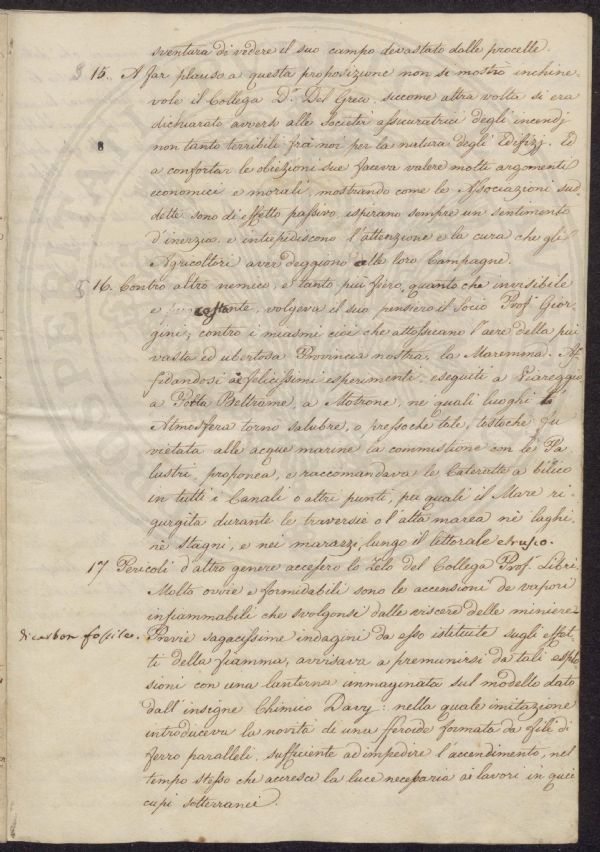 sventura di vedere il suo campo devastato dalle procelle.
§ 15. A far plauso a questa proposizione non si mostrò inchine-
vole il Collega D.r Del Greco, siccome altra volta si era
dichiarato avverso alle Società assicuratrici degli incendj
8
non tanto terribili fra noi per la natura degli Edifizj. Ed
a confortar le obiezioni sue faceva valere molti argomenti
economici e morali, mostrando come le Associazioni sud-
dette sono di effetto passivo, ispirano sempre un sentimento
d'inerzia, e intiepidiscono l'attenzione e la cura che gli
Agricoltori aver deggiono alle loro Campagne.
§ 16. Contro altro nemico, e tanto più fiero, quanto che invisibile
e volgeva il suo pensiero il Socio Prof. Gior-
gini, contro i miasmi cioè che attossicano l'aere della più
vasta ed ubertosa Provincia nostra, la Maremma. Af-
fidandosi ai felicissimi esperimenti eseguiti a Viareggio
a Porta Beltrame, a Motrone, ne quali luoghi l'
Atmosfera tornò salubre, o pressochè tale, tostochè fu
vietata alle acque marine la commistione con le Pa-
lustri, proponea, e raccomandava le Cateratte a bilico
in tutti i Canali o altri punti, pei quali il Mare ri-
gurgita durante le traversie o l'alta marea nè laghi,
nè stagni, e nei marazzi, lungo il littorale etrusco.
17. Pericoli d'altro genere accesero lo zelo del Collega Prof. Libri.
Molto ovvie e formidabili sono le accensioni de vapori
infiammabili che svolgonsi dalle viscere delle miniere
di carbon fossile. Previe sagacissime indagini da esso istituite sugli effet-
ti della fiamma, avvisava a premunirsi da tali esplo-
sioni con una lanterna immaginata sul modello dato
dall'insigne Chimico Davy: nella quale imitazione
introduceva la novità di una sferoide formata da fili di
ferro paralleli, sufficiente ad impedire l'accendimento, nel
tempo stesso che accresce la luce necessaria ai lavori in quei
cupi sotterranei.